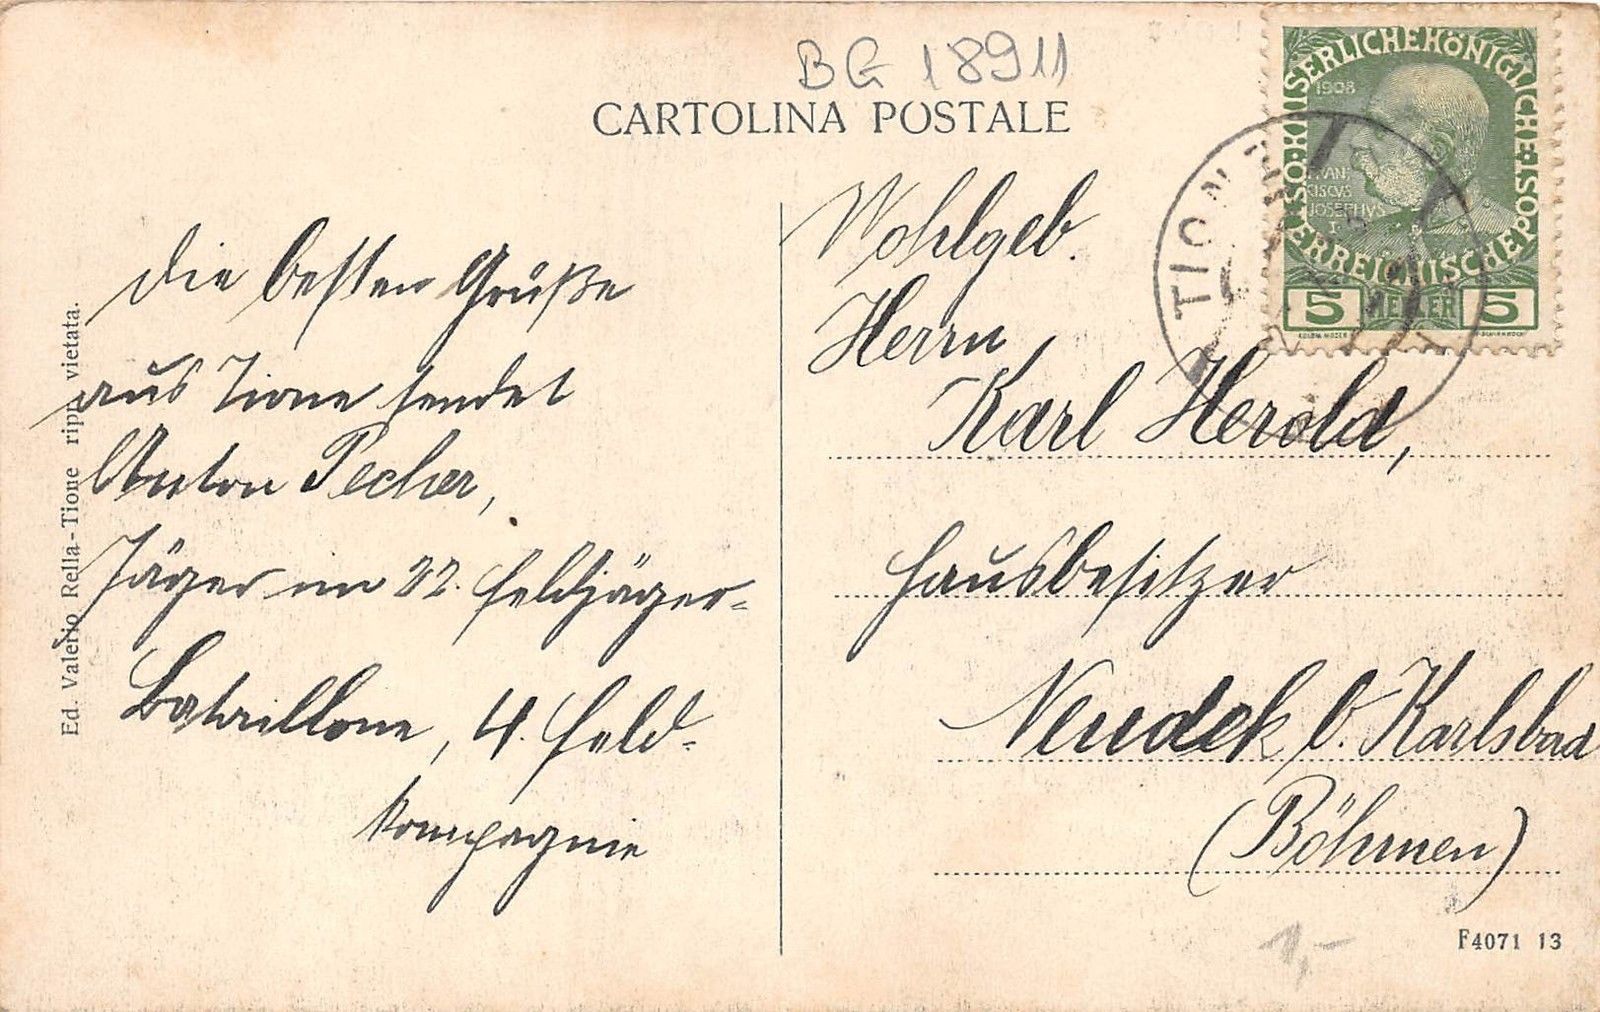 BG 18911
CARTOLINA POSTALE
Die besten Grüße
aus Tione sendet
Anton Pecher,
Jäger im 22. Feldjäger-
Bataillone, 4. Feld-
kompagnie
Ed. Valerio Rella-Tione ripr. vietata.
Wohlgeb.
Herrn
Karl Herold,
Hausbesitzer
Neudek b. Karlsbad
(Böhmen)
KAISERLICHE KÖNIGLICHE ÖSTERREICHISCHE POST
1908
FRAN
CISCVS
JOSEPHVS
I
5 HELLER 5
TION
1,-
F4071 13